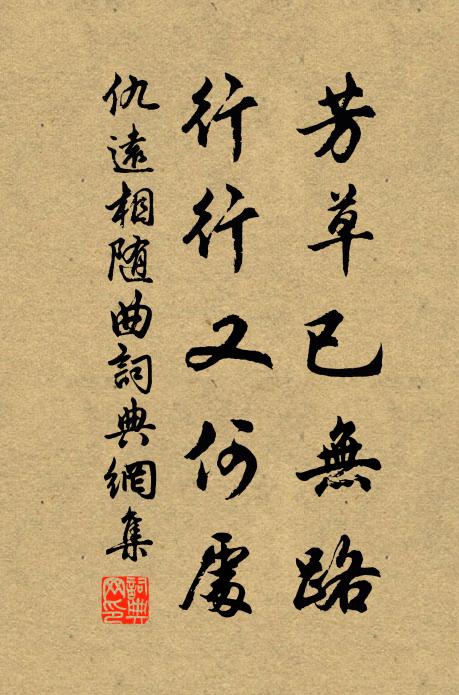 芳草已無路
行行又何處
仇遠相随曲詞典網集
詞典網印